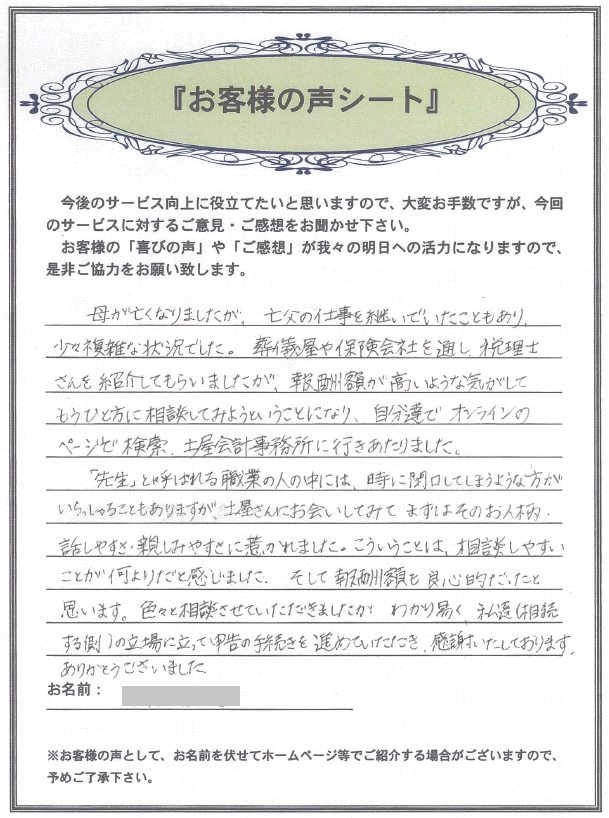 『お客様の声シート』
今後のサービス向上に役立てたいと思いますので、大変お手数ですが、今回
のサービスに対するご意見・ご感想をお聞かせ下さい。
お客様の「喜びの声」や「ご感想」が我々の明日への活力になりますので、
是非ご協力をお願い致します。
母が亡くなりましたが、亡父の仕事を継いでいたこともあり、
少々複雑な状況でした。葬儀屋や保険会社を通し、税理士
さんを紹介してもらいましたが、報酬額が高いような気がして
もうひと方に相談してみようということになり、自分達でオンラインの
ページで検索、土屋会計事務所に行きあたりました。
「先生」と呼ばれる職業の人の中には、時に閉口してしまうような方が
いらっしゃることもありますが、土屋さんにお会いしてみて まずはそのお人柄・
話しやすさ・親しみやすさに惹かれました。こういうことは、相談しやすい
ことが何よりだと感じました。そして報酬額も良心的だったと
思います。色々と相談させていただきましたが わかり易く 私達（相続
する側）の立場に立って申告の手続きを進めていただき、感謝いたしております。
ありがとうございました。
お名前：
※お客様の声として、お名前を伏せてホームページ等でご紹介する場合がございますので、
予めご了承下さい。